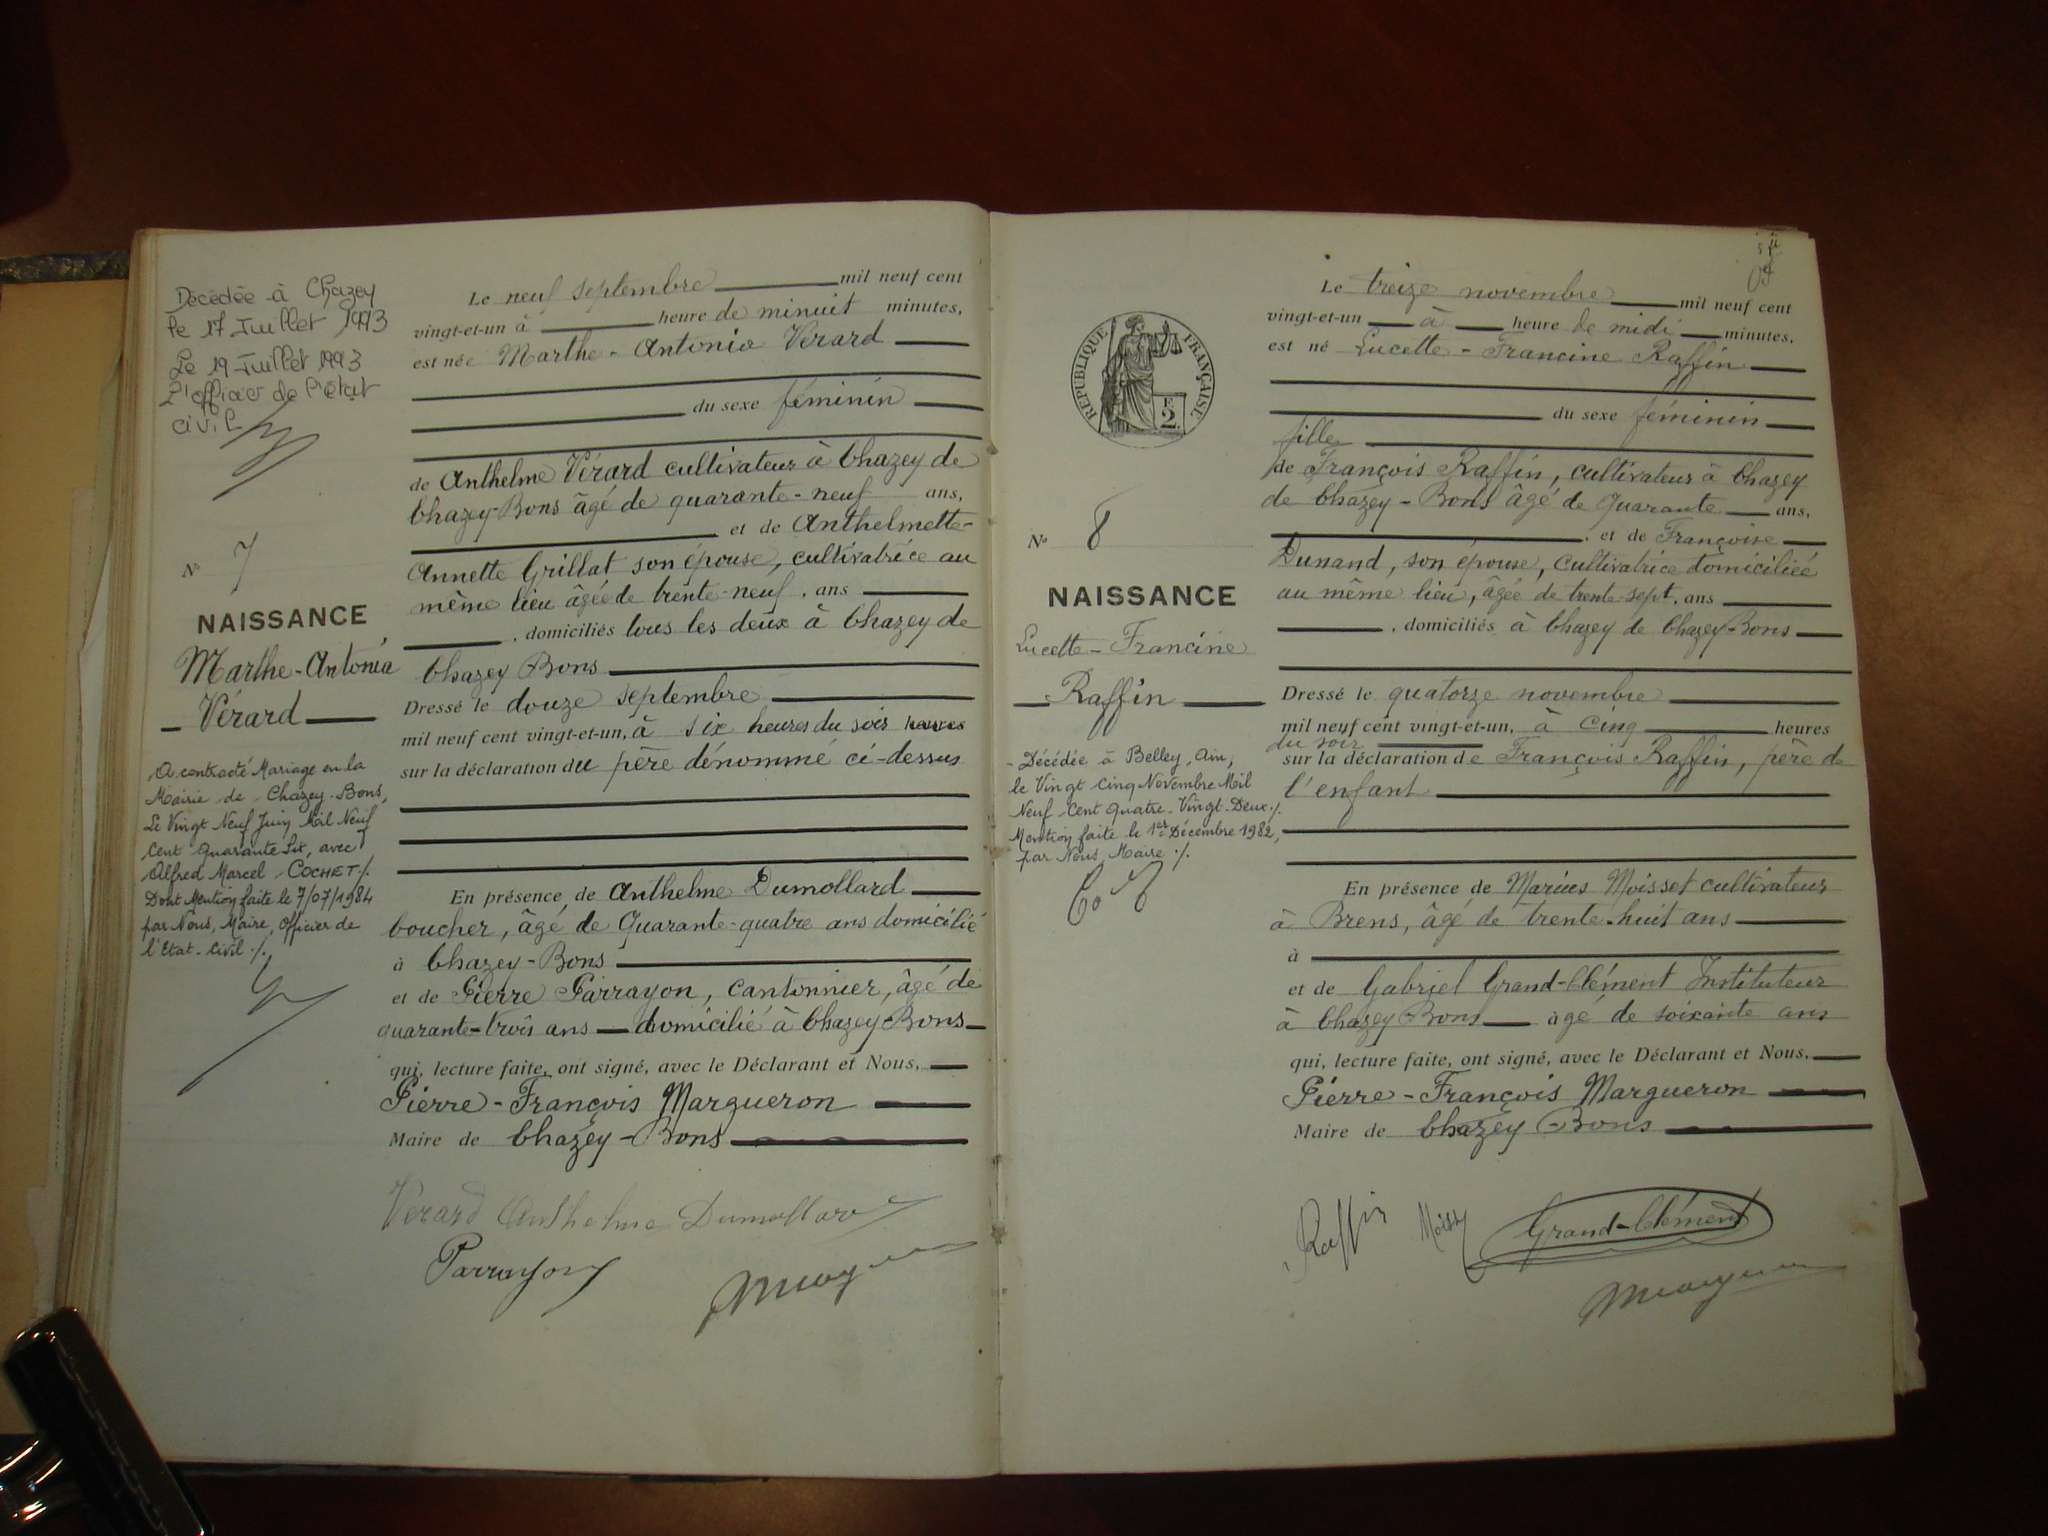 Décédée à Chazey
le 17 Juillet 1993
Le 19 Juillet 1993
L'officier de l'état
civil
N° 7
NAISSANCE
Marthe-Antonia
Vérard
A contracté Mariage en la
Mairie de Chazey-Bons,
Le Vingt Neuf Juin Mil Neuf
Cent Quarante Six, avec
Alfred Marcel COCHET ./.
Dont Mention faite le 7/07/1984
par Nous, Maire, Officier de
l'Etat-Civil ./.
Le neuf septembre mil neuf cent
vingt-et-un à heure de minuit minutes,
est née Marthe-Antonia Verard
du sexe féminin
de Anthelme Vérard cultivateur à Chazey de
Chazey-Bons âgé de quarante-neuf ans,
et de Anthelmette-
Annette Grillat son épouse, cultivatrice au
même lieu âgée de trente-neuf, ans
, domiciliés tous les deux à Chazey de
Chazey Bons
Dressé le douze septembre
mil neuf cent vingt-et-un, à six heures du soir heures
sur la déclaration du père dénommé ci-dessus
En présence de Anthelme Dumollard
boucher, âgé de Quarante-quatre ans domicilié
à Chazey-Bons
et de Pierre Parrayon, cantonnier, âgé de
quarante-trois ans domicilié à Chazey-Bons
qui, lecture faite, ont signé, avec le Déclarant et Nous,
Pierre-François Margueron
Maire de Chazey-Bons
Verard Anthelme Dumollard
Parrayon
RÉPUBLIQUE FRANÇAISE
2
N° 8
NAISSANCE
Lucette-Francine
Raffin
Décédée à Belley, Ain,
le Vingt Cinq Novembre Mil
Neuf Cent Quatre-Vingt-Deux ./.
Mention faite le 1er Décembre 1982,
par Nous, Maire ./.
Le treize novembre mil neuf cent
vingt-et-un à heure de midi minutes,
est né Lucette-Francine Raffin
du sexe féminin
fille
de François Raffin, cultivateur à Chazey
de Chazey-Bons âgé de Quarante ans,
, et de Françoise
Dunand, son épouse, Cultivatrice domiciliée
au même lieu, âgée de trente-sept, ans
, domiciliés à Chazey de Chazey-Bons
Dressé le quatorze novembre
mil neuf cent vingt-et-un, à Cinq heures
du soir
sur la déclaration de François Raffin, père de
l'enfant
En présence de Marius Moisset cultivateur
à Brens, âgé de trente-huit ans
à
et de Gabriel Grand-Clément Instituteur
à Chazey Bons agé de soixante ans
qui, lecture faite, ont signé, avec le Déclarant et Nous,
Pierre-François Margueron
Maire de Chazey-Bons
Raffin
Grand-Clément